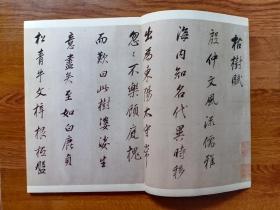 枯樹賦
殷仲文風流儒雅
海內知名代異時移
出為東陽太守常
忽〻不樂顧庭槐
而歎曰此樹婆娑生
意盡矣至如白鹿貞
松青牛文梓根柢盤